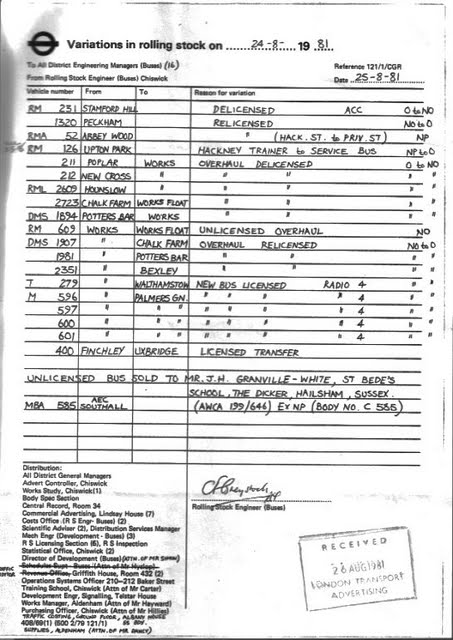 Variations in rolling stock on 24-8- 19 81.
To All District Engineering Managers (Buses) (16) Reference 121/1/CGR
From Rolling Stock Engineer (Buses) Chiswick Date 25-8-81
Vehicle number From To Reason for variation
RM 231 STAMFORD HILL DELICENSED ACC O to NO
1320 PECKHAM RELICENSED NO to O
RMA 52 ABBEY WOOD " (HACK. ST. to PRIV. ST) NP
RM 126 UPTON PARK HACKNEY TRAINER to SERVICE BUS NP to O
211 POPLAR WORKS OVERHAUL DELICENSED O to NO
212 NEW CROSS " " " "
RML 2609 HOUNSLOW " " " "
2723 CHALK FARM WORKS FLOAT " " "
DMS 1894 POTTERS BAR WORKS " " "
RM 609 WORKS WORKS FLOAT UNLICENSED OVERHAUL NO
DMS 1907 " CHALK FARM OVERHAUL RELICENSED NO to O
1981 " POTTERS BAR " " "
2351 " BEXLEY " " "
T 279 " WALTHAMSTOW NEW BUS LICENSED RADIO 4 "
M 596 " PALMERS GN. " " " " 4 "
597 " " " " " " 4 "
600 " " " " " " 4 "
601 " " " " " " 4 "
400 FINCHLEY UXBRIDGE LICENSED TRANSFER
UNLICENSED BUS SOLD TO MR. J.H. GRANVILLE-WHITE, ST BEDE'S
SCHOOL, THE DICKER, HAILSHAM, SUSSEX.
MBA 585 AEC SOUTHALL (AWCA 199/646) Ex NP (BODY NO. C 555)
Distribution:
All District General Managers
Advert Controller, Chiswick
Works Study, Chiswick(1)
Body Spec Section
Central Record, Room 34
Commercial Advertising, Lindsay House (7)
Costs Office (R S Engr- Buses) (2)
Scientific Adviser (2), Distribution Services Manager
Mech Engr (Development - Buses) (3)
R S Licensing Section (6), R S Inspection
Statistical Office, Chiswick (2)
Director of Development (Buses)
Schedules Supt - Buses (Attn of Mr Hyslop)
Revenue Officer, Griffith House, Room 432 (2)
Operations Systems Officer 210-212 Baker Street
Training School, Chiswick (Attn of Mr Carter)
Development Engr, Signalling, Telstar House
Works Manager, Aldenham (Attn of Mr Hayward)
Purchasing Officer, Chiswick (Attn of Mr Hillies)
TRAFFIC COSTING, GROUND FLOOR, ALBANY HOUSE
408/69(1) (500 2/79 121/1)
SUPPLIES, ALDENHAM
Rolling Stock Engineer (Buses)
RECEIVED
26 AUG 1981
LONDON TRANSPORT
ADVERTISING